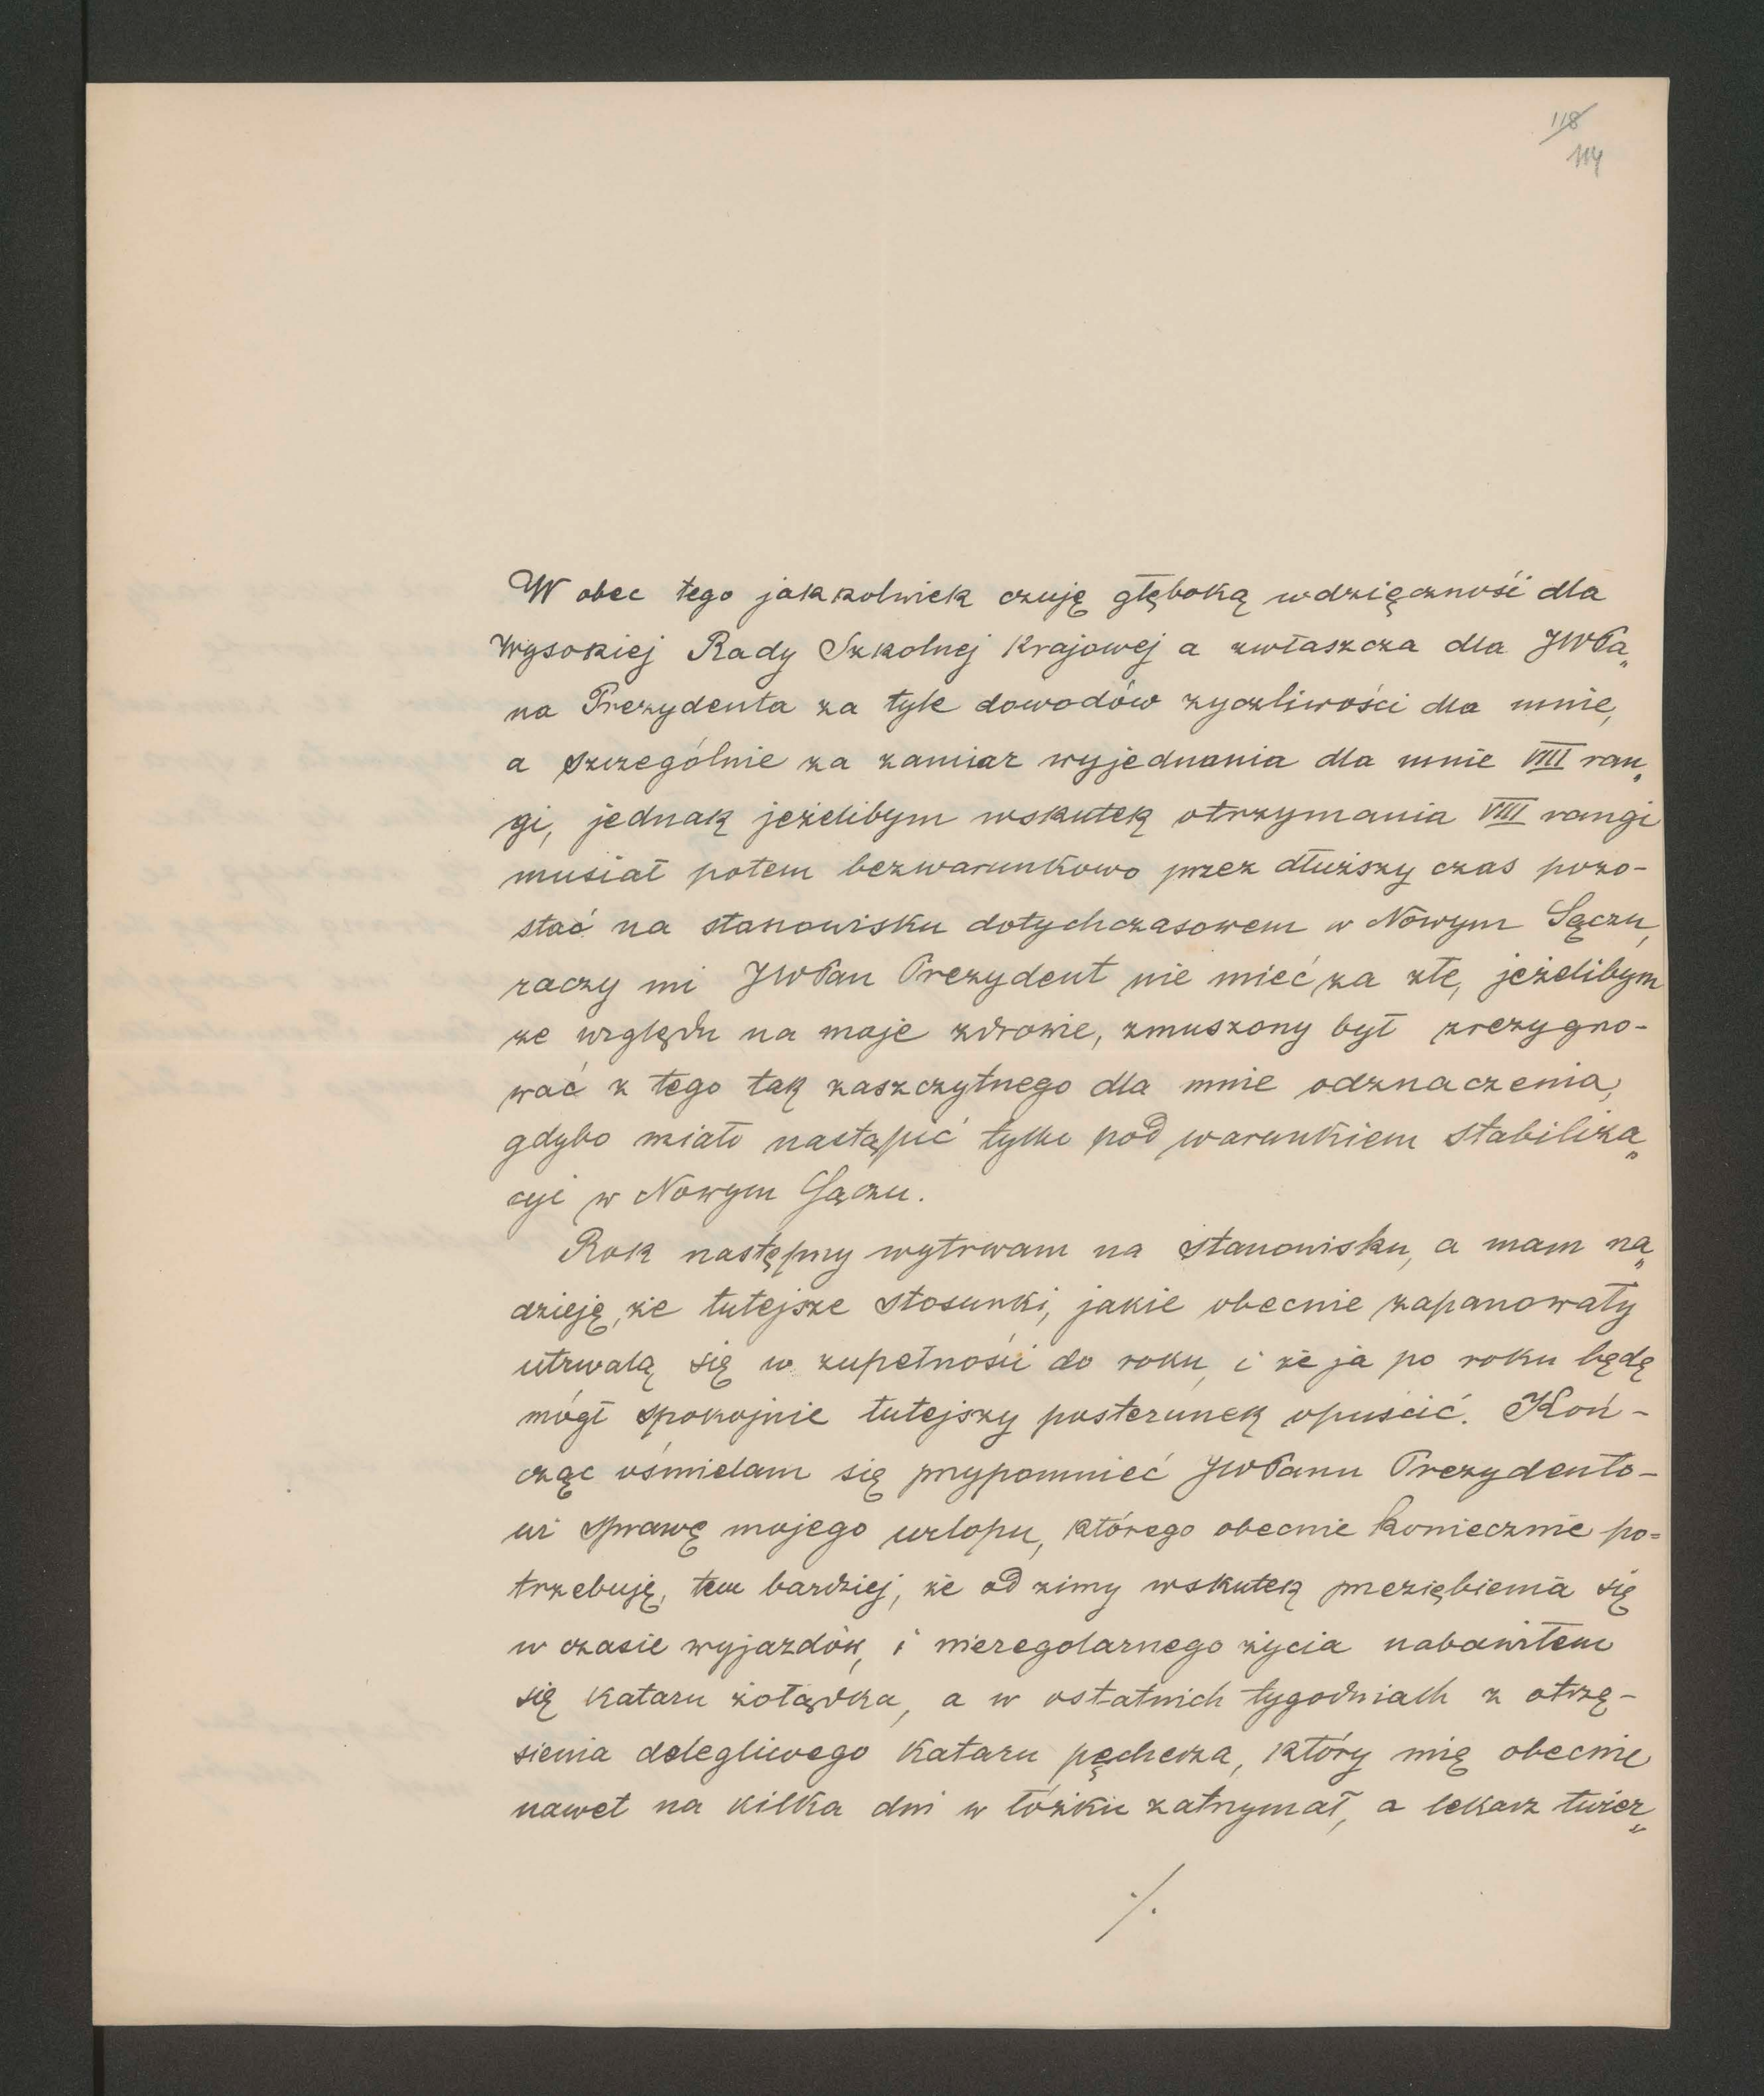 118
114
W obec tego jakkolwiek czuję głęboką wdzięczność dla
Wysokiej Rady Szkolnej Krajowej a zwłaszcza dla JWPa„
na Prezydenta za tyle dowodów życzliwości dla mnie,
a szczególnie za zamiar wyjednania dla mnie VIII ran„
gi, jednak jeżelibym wskutek otrzymania VIII rangi
musiał potem bezwarunkowo przez dłuższy czas pozo-
stać na stanowisku dotychczasowem w Nowym Sączu,
raczy mi JWPan Prezydent nie mieć za złe, jeżelibym
ze względu na moje zdrowie, zmuszony był zrezygno-
wać z tego tak zaszczytnego dla mnie odznaczenia,
gdybo miało nastąpić tylko pod warunkiem stabiliza„
cyi w Nowym Sączu.
Rok następny wytrwam na stanowisku, a mam na„
dzieję, że tutejsze stosunki, jakie obecnie zapanowały
utrwalą się w zupełności do roku, i że ja po roku będę
mógł spokojnie tutejszy posterunek opuścić. Koń-
cząc ośmielam się przypomnieć JWPanu Prezydento-
wi sprawę mojego urlopu, którego obecnie koniecznie po=
trzebuję, tem bardziej, że od zimy wskutek przeziębienia się
w czasie wyjazdów, i nieregolarnego życia nabawiłem
się kataru żołądka, a w ostatnich tygodniach z otrzę-
sienia dolegliwego kataru pęcherza, który mię obecnie
nawet na kilka dni w łóżku zatrzymał, a lekarz twier„
./.